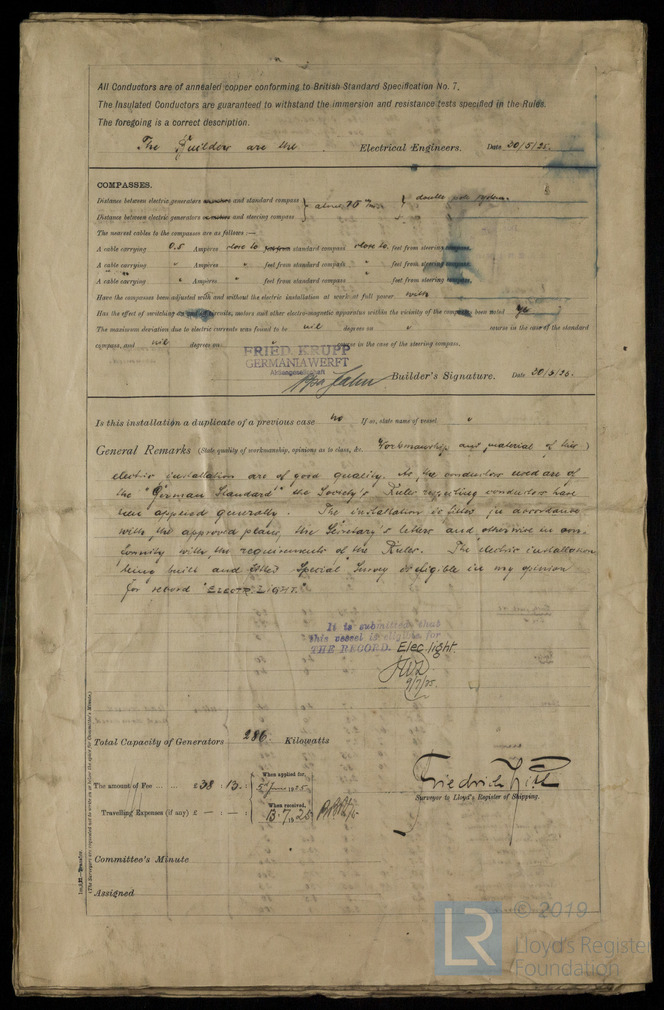 All Conductors are of annealed copper conforming to British Standard Specification No. 7.
The Insulated Conductors are guaranteed to withstand the immersion and resistance tests specified in the Rules.
The foregoing is a correct description.
The Builders are the Electrical Engineers. Date 20/5/25.
COMPASSES.
Distance between electric generators and standard compass about 75 double pole system.
Distance between electric generators and steering compass
The nearest cables to the compasses are as follows:—
A cable carrying 0.5 Ampères close to feet from standard compass close to feet from steering compass.
A cable carrying " Ampères " feet from standard compass " feet from steering compass.
A cable carrying " Ampères " feet from standard compass " feet from steering compass.
Have the compasses been adjusted with and without the electric installation at work at full power with
Has the effect of switching on and off circuits, motors and other electro-magnetic apparatus within the vicinity of the compasses been noted yes
The maximum deviation due to electric currents was found to be nil degrees on " course in the case of the standard
compass, and nil degrees on " course in the case of the steering compass.
FRIED. KRUPP
GERMANIAWERFT
Aktiengesellschaft
Builder's Signature. Date 20/5/25.
Is this installation a duplicate of a previous case no If so, state name of vessel "
General Remarks (State quality of workmanship, opinions as to class, &c. Workmanship and material of this )
electric installation are of good quality. As the conductors used are of
the "German Standard" the Society's Rules respecting conductors have
been applied generally. The installation is fitted in accordance
with the approved plans, the Secretary's letters and otherwise in con-
formity with the requirements of the Rules. The electric installation
being built and fitted Special Survey is eligible in my opinion
for record "ELECTR LIGHT."
It is submitted that
this vessel is eligible for
THE RECORD. Elec light.
9/7/25.
Total Capacity of Generators 286. Kilowatts
The amount of Fee ... ... £ 38 : 13 : When applied for, 5th June 1925
Travelling Expenses (if any) £ — : — : When received, 13.7.1925
Friedrich
Surveyor to Lloyd's Register of Shipping.
Committee's Minute
Assigned
(The Surveyors are requested not to write on or below the space for Committee's Minute.)
© 2019
LR
Lloyd's Register
Foundation